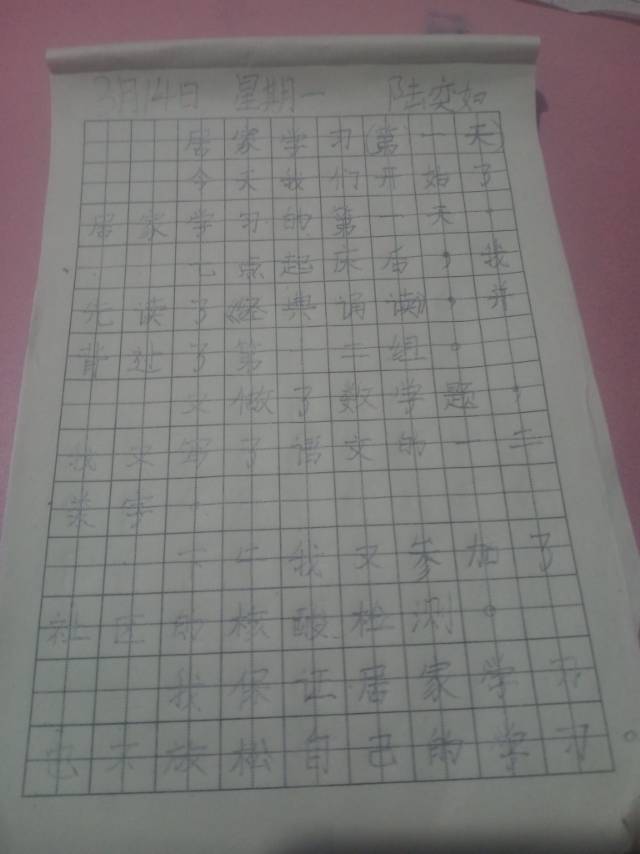 3月14日 星期一 陆奕如
居家学习(第一天)
今天我们开始了
居家学习的第一天。
七点起床后，我
先读了《经典诵读》，并
背过了第一二组。
又做了数学题，
我又写了语文的一二
类字。
下午我又参加了
社区的核酸检测。
我保证居家学习
也不放松自己的学习